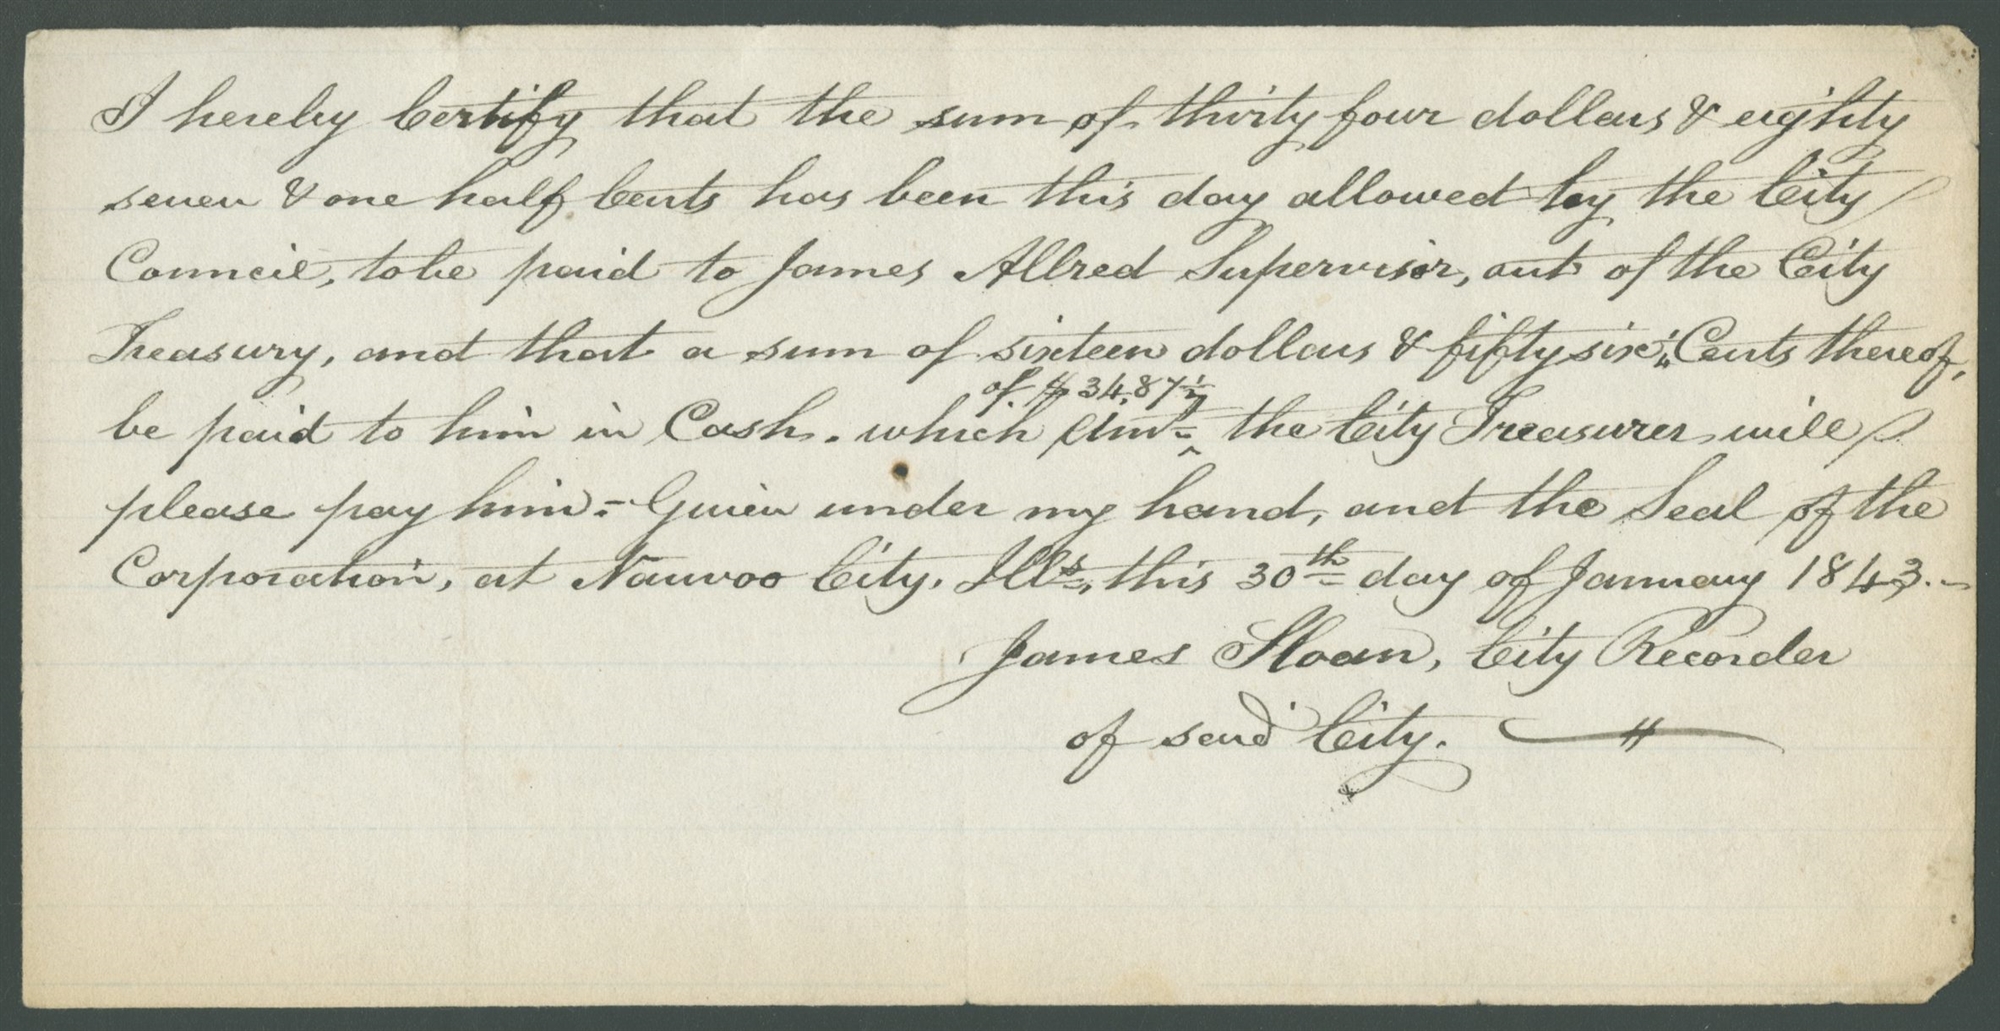 I hereby Certify that the sum of thirty four dollars & eighty
seven & one half Cents has been this day allowed by the City
Council, to be paid to James Allred Supervisor, out of the City
Treasury, and that a sum of sixteen dollars & fifty six 1/4 Cents thereof,
of $34.87 1/2
be paid to him in Cash. which Amt. ^ the City Treasurer will
please pay him. - Given under my hand, and the Seal of the
Corporation, at Nauvoo City. Ills., this 30th day of January 1843. -
James Sloan, City Recorder
of said City.